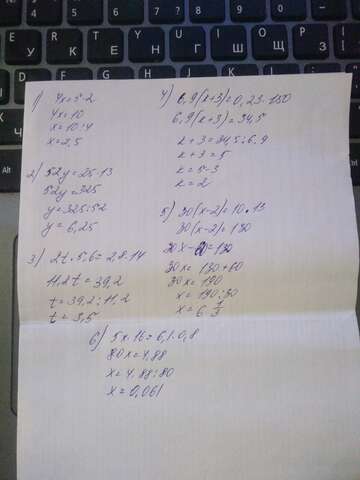 1) 4x=5·2
4x=10
x=10:4
x=2,5
2) 52y=25·13
52y=325
y=325:52
y=6,25
3) 2t·5,6=2,8·14
11,2t=39,2
t=39,2:11,2
t=3,5
4) 6,9(x+3)=0,23·150
6,9(x+3)=34,5
x+3=34,5:6,9
x+3=5
x=5-3
x=2
5) 30(x-2)=10·13
30(x-2)=130
30x-60=130
30x=130+60
30x=190
x=190:30
x=6 1/3
6) 5x·16=6,1·0,8
80x=4,88
x=4,88:80
x=0,061